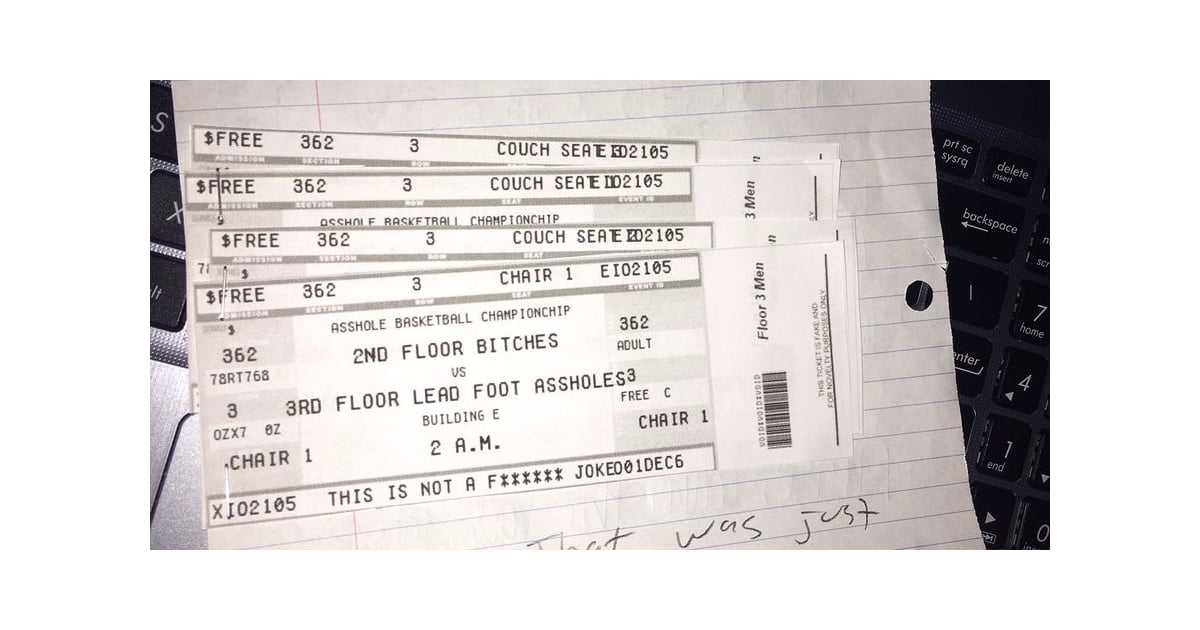 $FREE 362 3 COUCH SEAT
ADMISSION SECTION ROW
$FREE 362 3 COUCH SEAT
ADMISSION SECTION ROW SEAT EVENT ID
ASSHOLE BASKETBALL CHAMPIONCHIP
$FREE 362 3 COUCH SEAT
ADMISSION SECTION ROW SEAT
$
$FREE 362 3 CHAIR 1 EIO2105
ADMISSION SECTION ROW SEAT EVENT ID
$ ASSHOLE BASKETBALL CHAMPIONCHIP 362
362 2ND FLOOR BITCHES ADULT
78RT768 VS
3 3RD FLOOR LEAD FOOT ASSHOLES 3
OZX7 0Z BUILDING E FREE C
CHAIR 1 2 A.M. CHAIR 1
XIO2105 THIS IS NOT A F****** JOKED01DEC6
3 Men
Floor 3 Men
VOID:VOID:VOID
THIS TICKET IS FAKE AND
FOR NOVELTY PURPOSES ONLY
That was just
prt sc
sysrq
delete
insert
backspace
enter
7
home
4
1
end
0
S
X